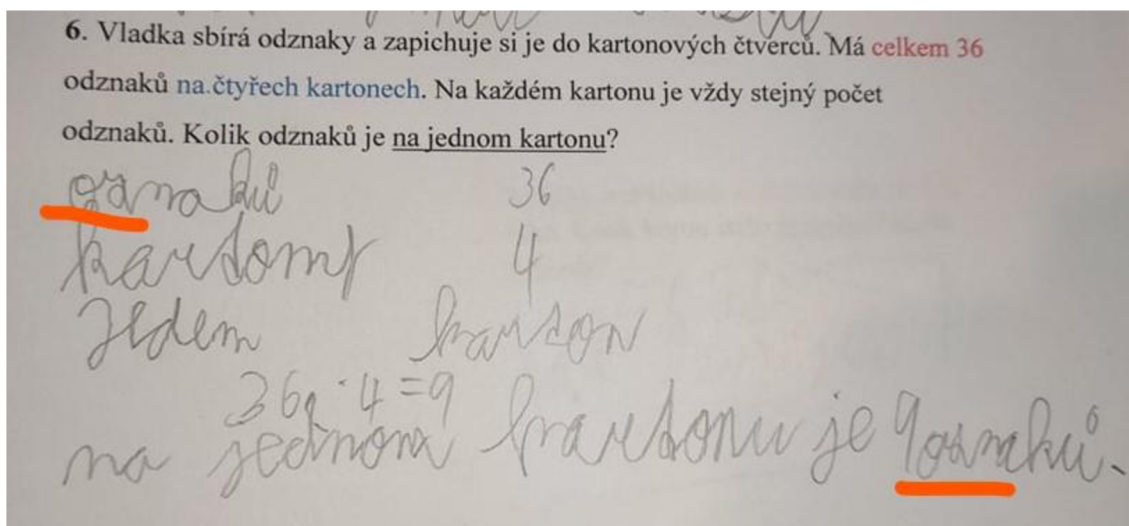 6. Vladka sbírá odznaky a zapichuje si je do kartonových čtverců. Má celkem 36
odznaků na čtyřech kartonech. Na každém kartonu je vždy stejný počet
odznaků. Kolik odznaků je na jednom kartonu?
oznaků 36
kartony 4
jeden karton
36 : 4 = 9
na jednom kartonu je 9 oznaků.